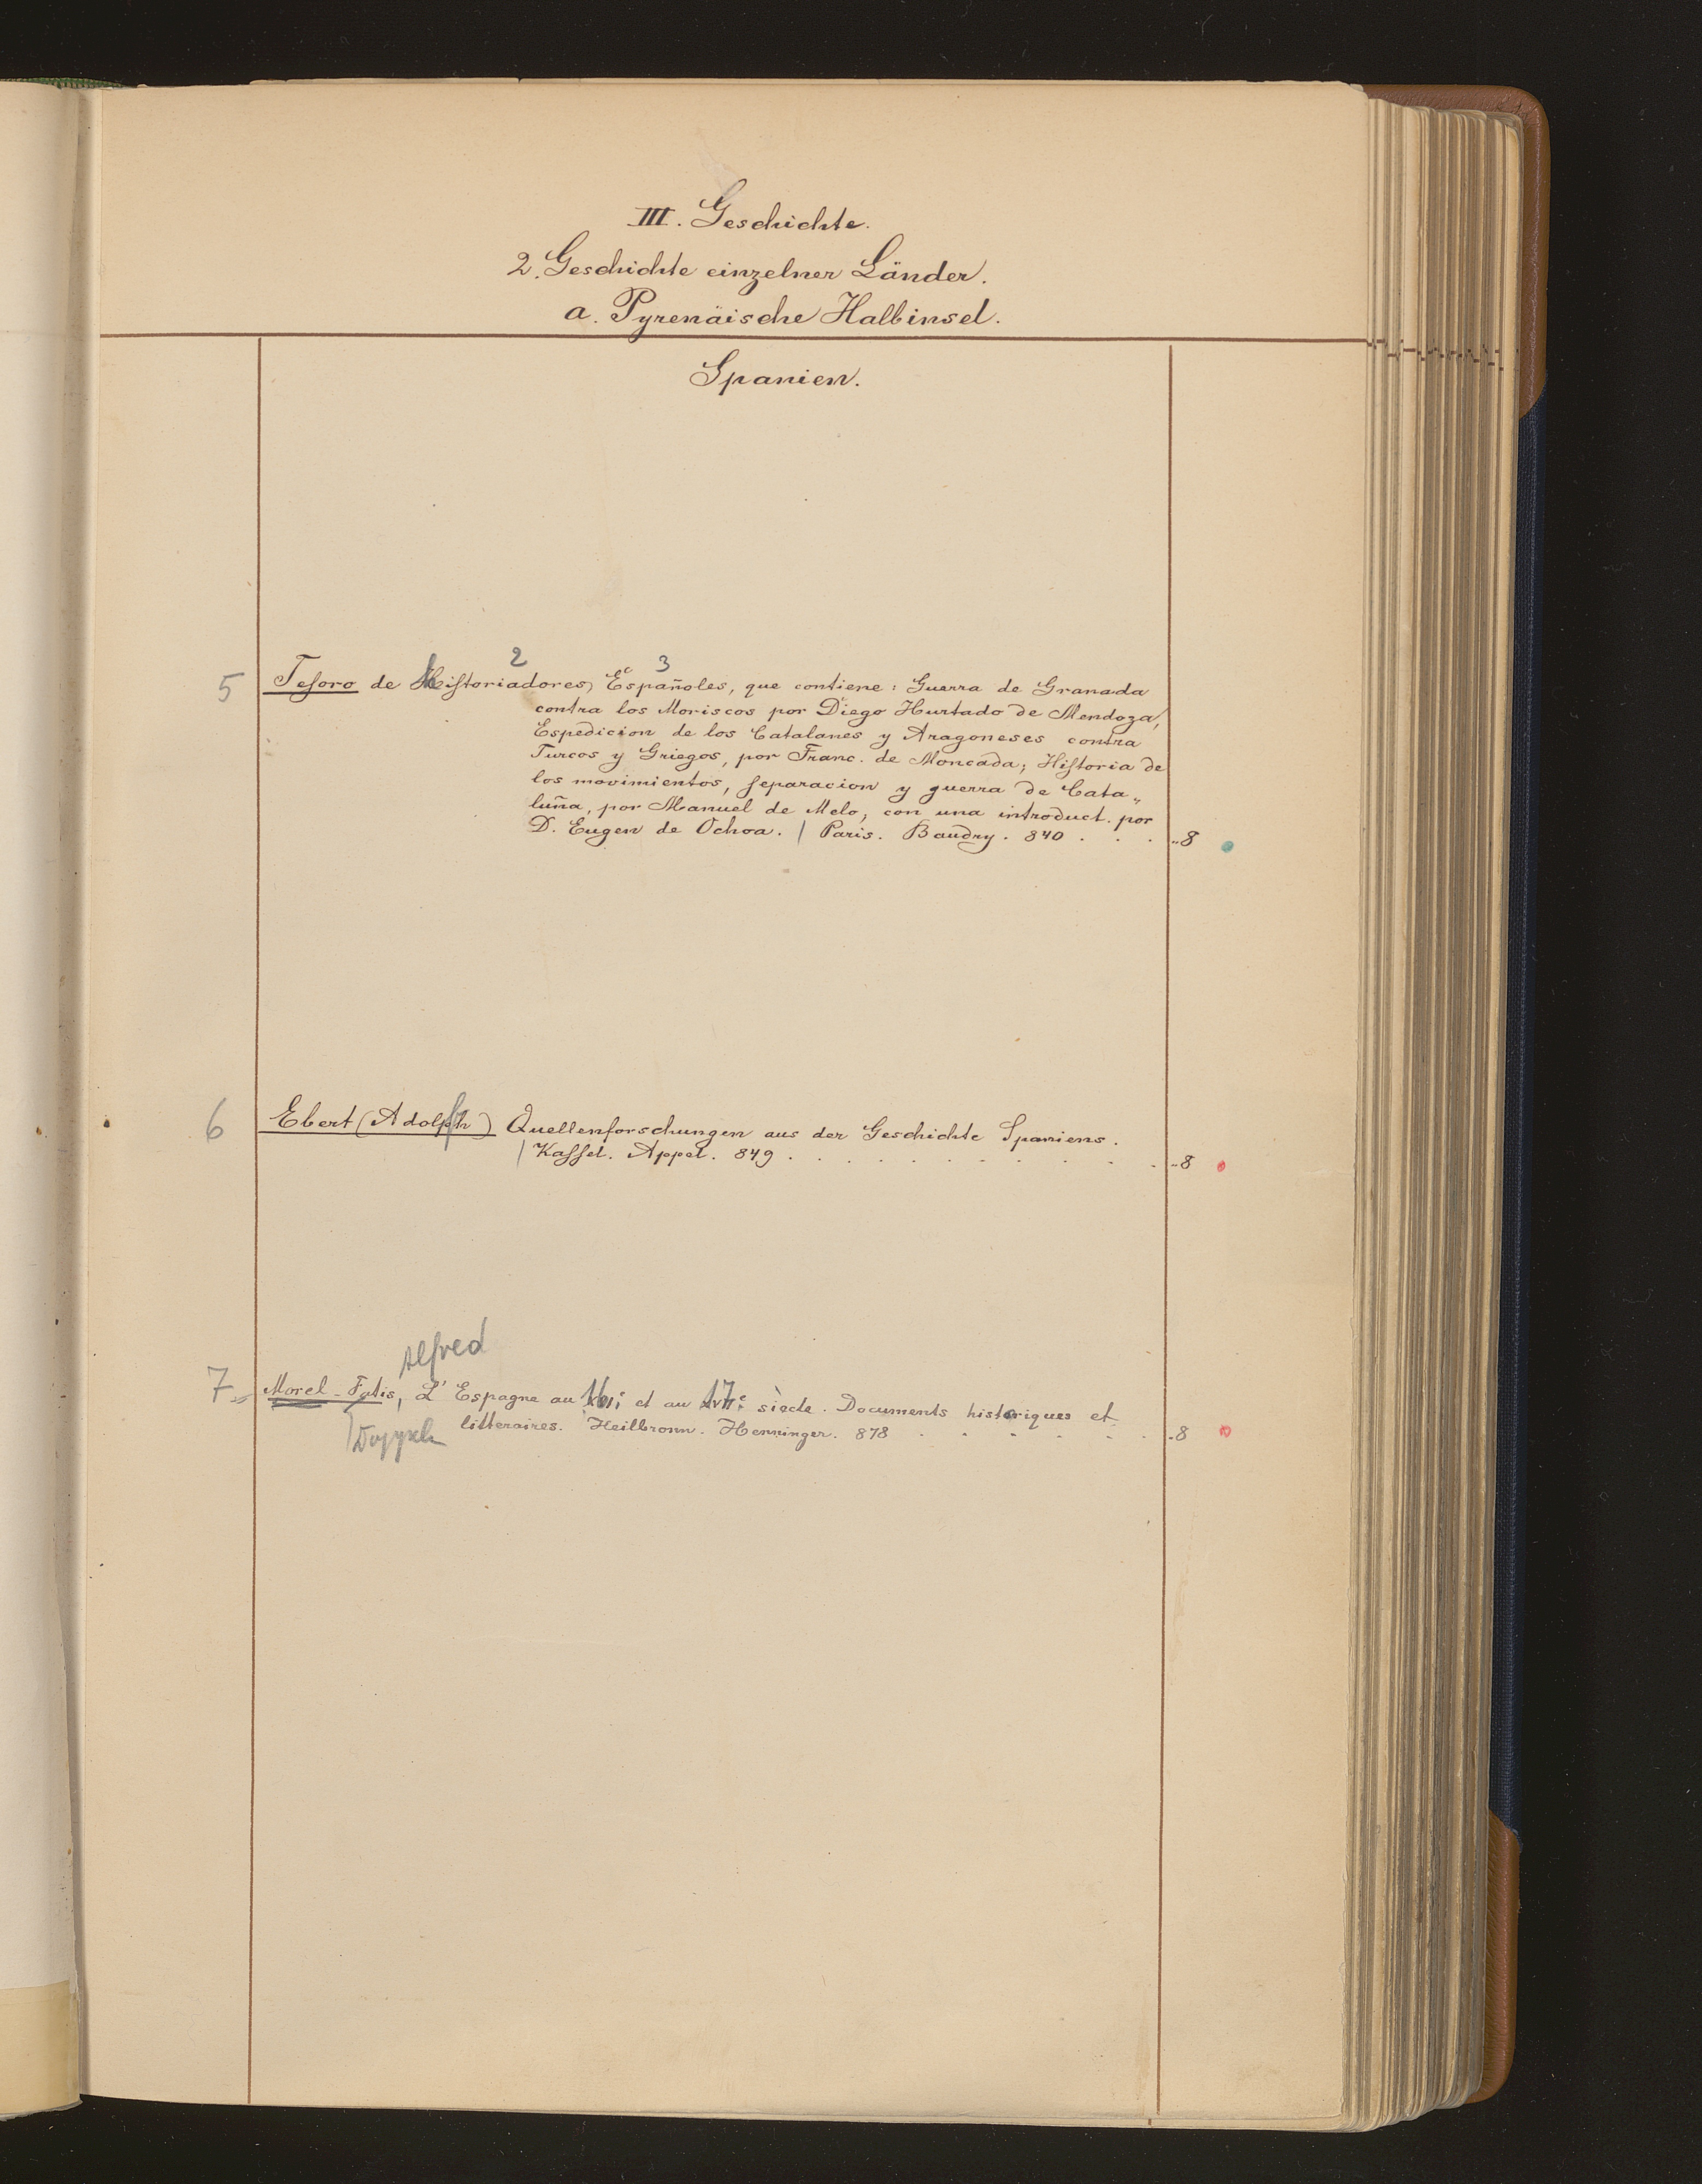 III. Geschichte.
2. Geschichte einzelner Länder.
a. Pyrenäische Halbinsel.
Spanien.
2 3
5 Tesoro de historiadores Españoles, que contiene: Guerra de Granada
contra los Moriscos por Diego Hurtado de Mendoza,
Espedicion de los Catalanes y Aragoneses contra
Turcos y Griegos, por Franc. de Moncada; Historia de
los movimientos, separacion y guerra de Cata„
luña, por Manuel de Melo, con una introduct. por
D. Eugen de Ochoa. | Paris. Baudry. 840 . . . „8
6 Ebert (Adolf) Quellenforschungen aus der Geschichte Spaniens.
| Kassel. Appel. 849 . . . . . . . . . . . . „8
Alfred
7 Morel-Fatis, L'Espagne au 16e et au 17e siècle. Documents historiques et
litteraires. Heilbronn. Henninger. 878 . . . . . . „8